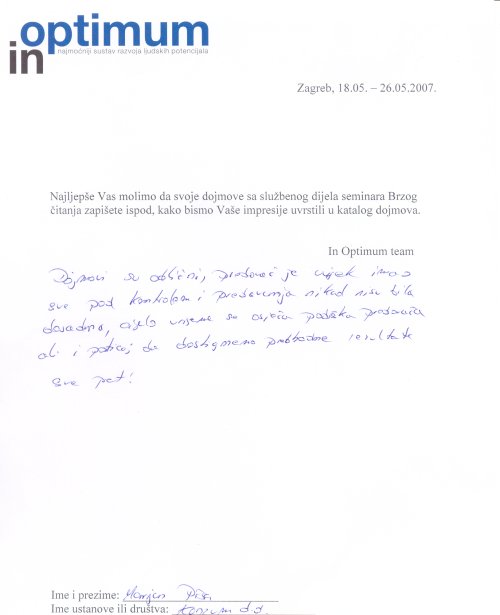 in optimum
najmoćniji sustav razvoja ljudskih potencijala
Zagreb, 18.05. – 26.05.2007.
Najljepše Vas molimo da svoje dojmove sa službenog dijela seminara Brzog
čitanja zapišete ispod, kako bismo Vaše impresije uvrstili u katalog dojmova.
In Optimum team
Dojmovi su odlični, predavač je uvijek imao
sve pod kontrolom i predavanja nikad nisu bila
dosadna, cijelo vrijeme se osjeća podrška predavača
ali i poticaj da dostignemo prethodne rezultate
sve pet!
Ime i prezime: Marijan
Ime ustanove ili društva: Konzum d.d.